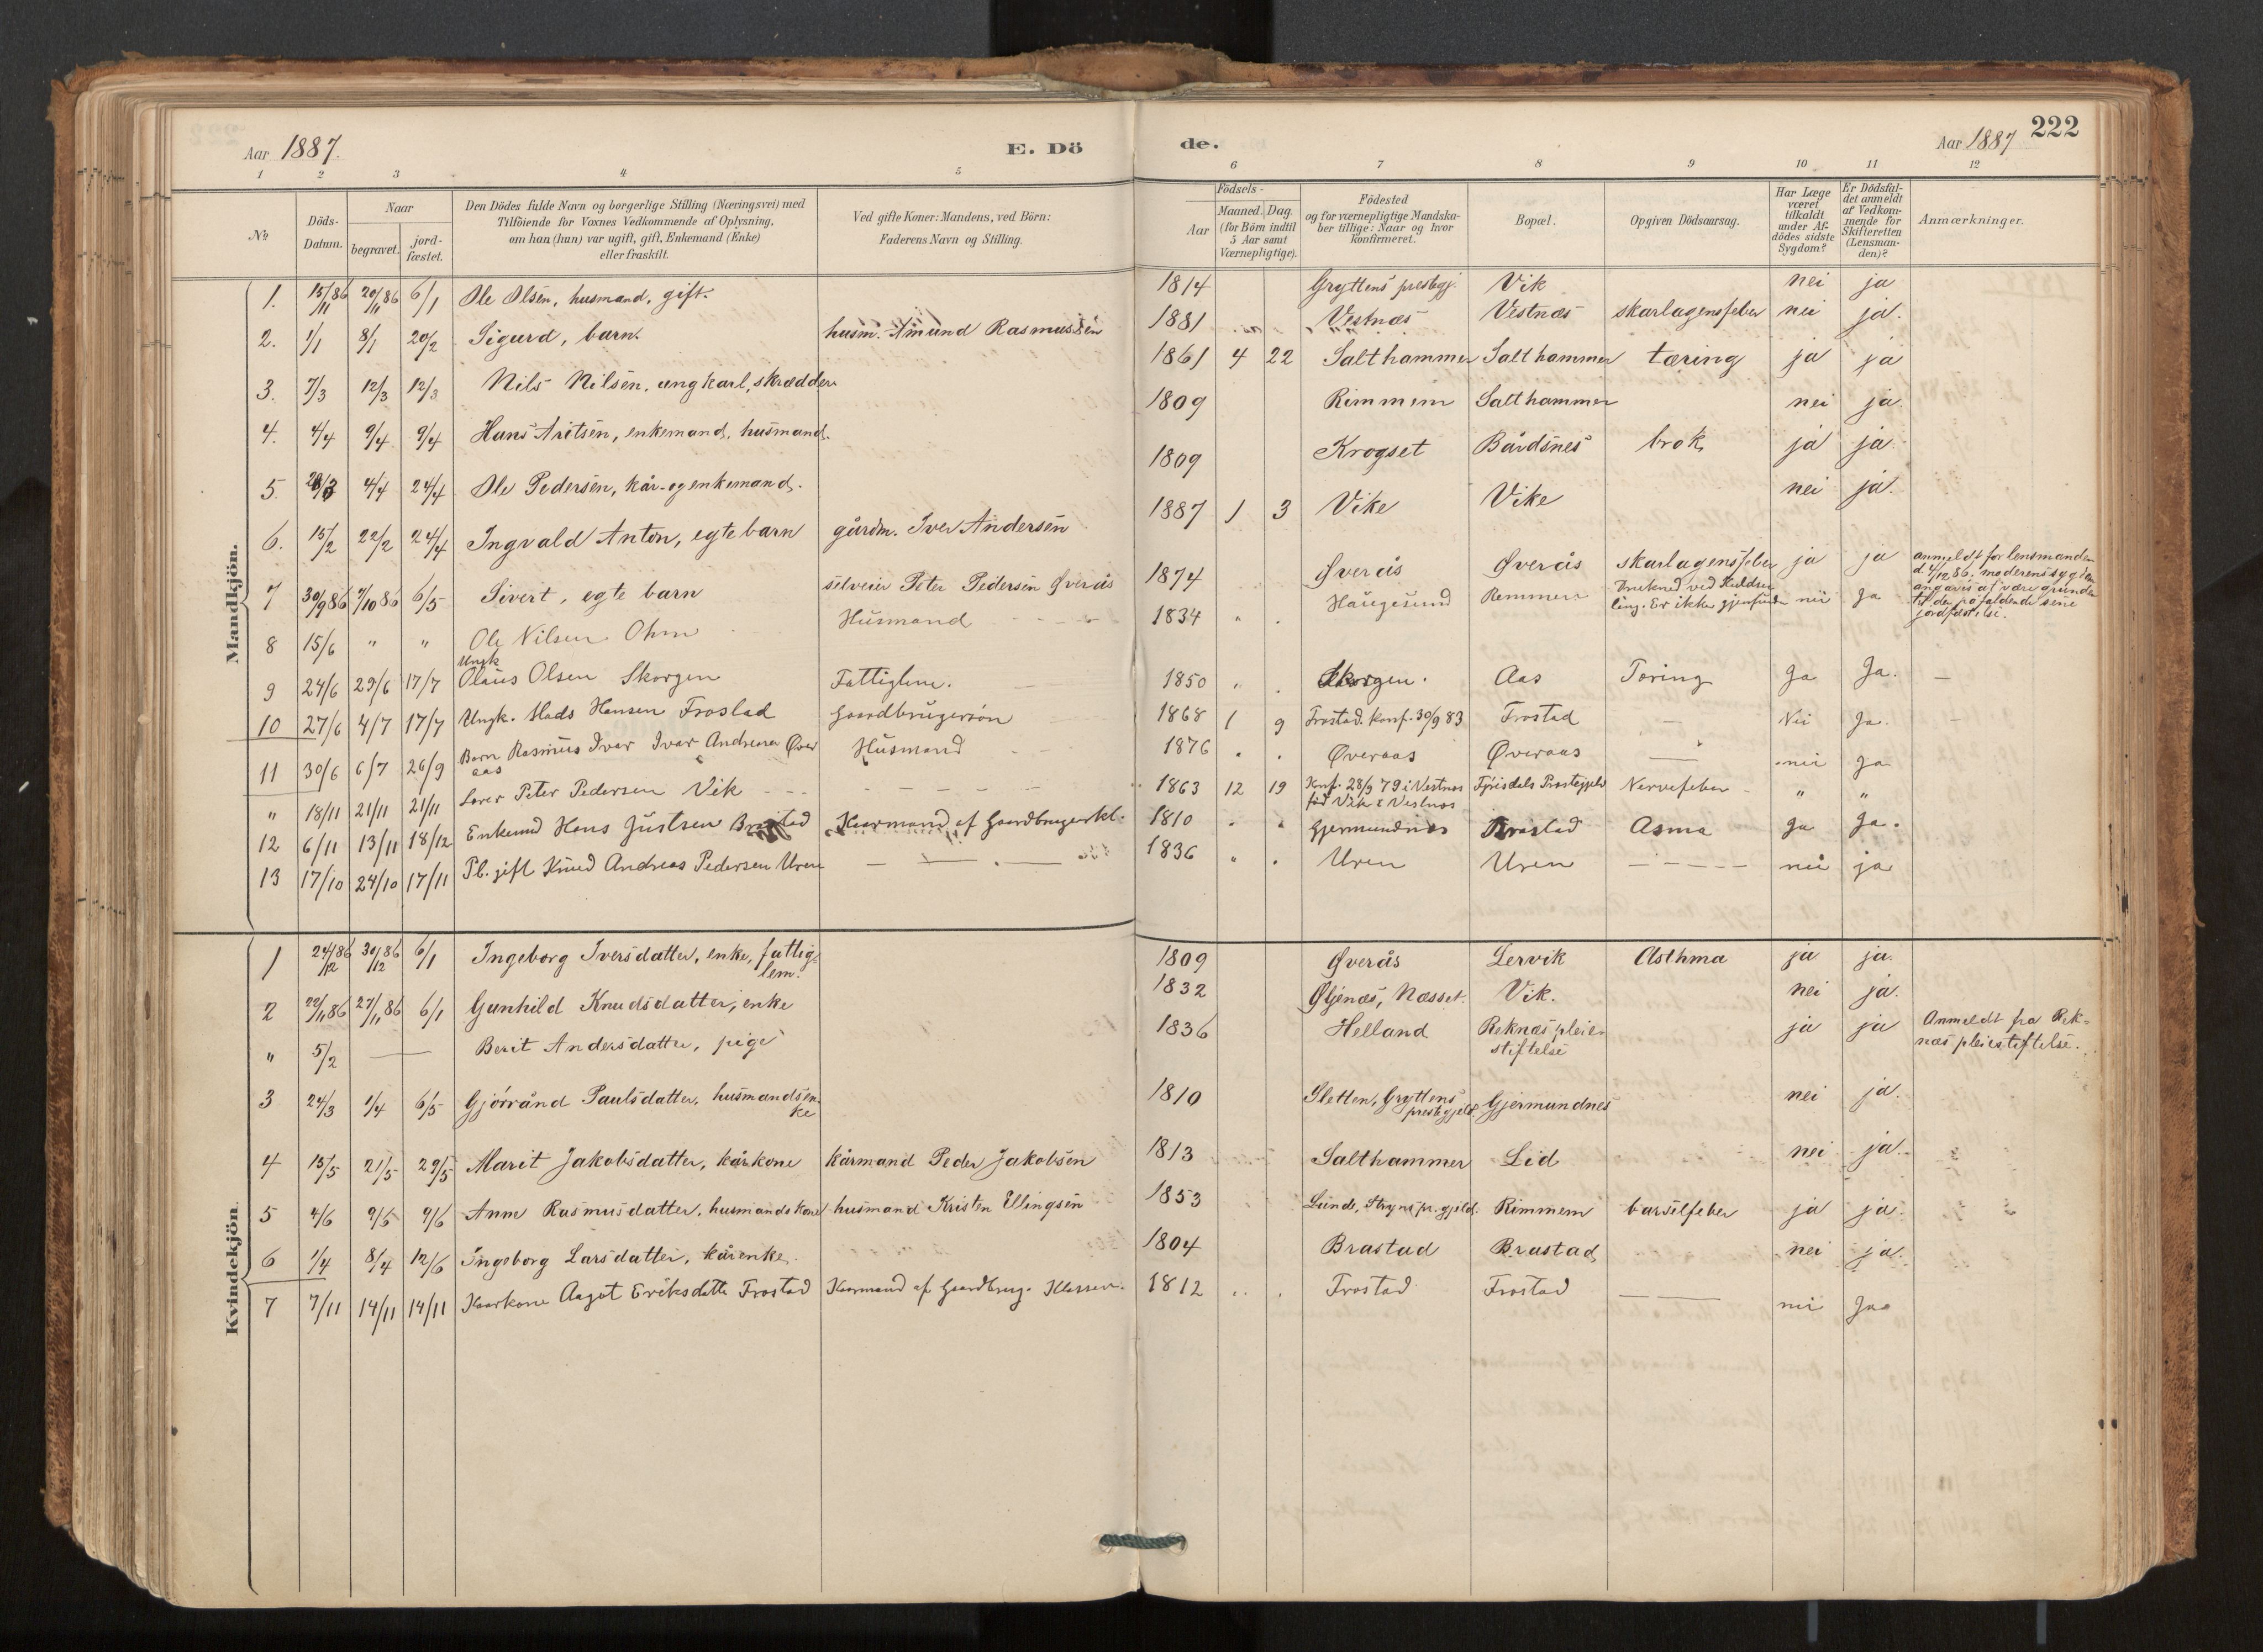 Aar 1887.
E. Dö
de.
Aar 1887
222
1 2 3 4 5 6 7 8 9 10 11 12
№
Döds-Datum.
Naar
begravet.
jord-fæstet.
Den Dödes fulde Navn og borgerlige Stilling (Næringsvei) med
Tilföiende for Voxnes Vedkommende af Oplysning,
om han (hun) var ugift, gift, Enkemand (Enke)
eller fraskilt.
Ved gifte Koner: Mandens, ved Börn:
Faderens Navn og Stilling.
Födsels-
Aar
Maaned. Dag.
(for Börn indtil
5 Aar samt
Værnepligtige).
Födested
og for værnepligtige Mandska-
ber tillige: Naar og hvor
konfirmeret.
Bopæl.
Opgiven Dödsaarsag.
Har Læge
været
tilkaldt
under Af-
dödes sidste
Sygdom?
Er Dödsfal-
det anmeldt
af Vedkom-
mende for
Skifteretten
(Lensman-
den)?
Anmærkninger.
Mandkjön.
1. 15/11 86 20/11 86 6/1 Ole Olsen, husmand, gift. 1814 Gryttens prestegj. Vik nei ja
2. 1/1 8/1 20/2 Sigurd, barn. husm. Amund Rasmussen 1881 Vestnæs Vestnæs skarlagensfeber nei ja.
3. 7/3 12/3 12/3 Nils Nilsen, ungkarl, skrædder 1861 4 22 Salthammer Salthammer tæring ja ja
4. 4/4 9/4 9/4 Hans Aritsen, enkemand, husmand. 1809 Rimmem Salthammer nei ja.
5. 28/3 4/4 24/4 Ole Pedersen, kår- og enkemand. 1809 Krogset Bårdsnes brok ja ja.
6. 15/2 22/2 24/4 Ingvald Anton, egte barn gårdm. Iver Andersen 1887 1 3 Vike Vike nei ja.
7 30/9 86 7/10 86 6/5 Sivert, egte barn selveier Peter Pedersen Øverås 1874 Øverås Øverås skarlagensfeber ja ja anmeldt for lensmanden
d. 4/12 86. moderens sygdom
angavis at være grunden
til den påfaldende sene
jordfæstelse.
8 15/6 " " Ole Nilsen Ohm Husmand 1834 " . Haugesund Remmen Drukned ved Kuldsei
ling. Er ikke gjenfunden nei Ja
9 24/6 29/6 17/7 Ungk Olaus Olsen Skorgen Fattiglem. 1850 " . Skorgen. Aas Tæring Ja Ja. —
10 27/6 4/7 17/7 Ungk. Mads Hansen Frostad Gaardbrugersøn 1868 1 9 Frostad. konf. 30/9 83 Frostad — Nei Ja. —
11 30/6 6/7 26/9 Barn Rasmus Ivar Ivar Andreasen Øver
aas Husmand 1876 . . Øveraas Øveraas — nei Ja
" 18/11 21/11 21/11 Lærer Peter Pedersen Vik 1863 12 19 Konf. 28/9 79 i Vestnæs
fød Vik i Vestnæs Fyrisdals Prestegjeld Nervefeber " "
12 6/11 13/11 18/12 Enkemd Hans Justsen Brastad Kaarmand af Gaardbrugerkl. 1810 " " Gjermundnæs Brastad Asma Ja Ja.
13 17/10 24/10 17/11 Pl. gift Knud Andreas Pedersen Uren — — . — 1836 " . Uren Uren — nei ja
Kvindekjön.
1 24/12 86 30/12 86 6/1 Ingeborg Iversdatter, enke, fattig-
lem. 1809 Øverås Lervik Asthma ja ja.
2 22/11 86 27/11 86 6/1 Gunhild Knudsdatter, enke 1832 Øljenæs, Næsset. Vik. nei ja.
" 5/2 — Berit Andersdatter, pige 1836 Helland Reknæs pleie-
stiftelse ja ja Anmeldt fra Rek-
næs pleiestiftelse.
3 24/3 1/4 6/5 Gjørrånd Paulsdatter, husmandsen-
ke 1810 Sletten, Gryttens
prestegjeld. Gjermundnes nei ja.
4 15/5 21/5 29/5 Marit Jakobsdatter, kårkone kårmand Peder Jakobsen 1813 Salthammer Lid nei ja.
5 4/6 9/6 9/6 Anne Rasmusdatter, husmandskone husmand Kristen Ellingsen 1853 Lunde, Stryns pr. gjeld. Rimmem barselfeber ja ja.
6 1/4 8/4 12/6 Ingeborg Larsdatter, kårenke. 1804 Brastad Brastad nei ja.
7 7/11 14/11 14/11 Kaarkone Aagot Eriksdatter Frostad Kaarmand af Gaardbrug. Klassen. 1812 " . Frostad Frostad — nei Ja